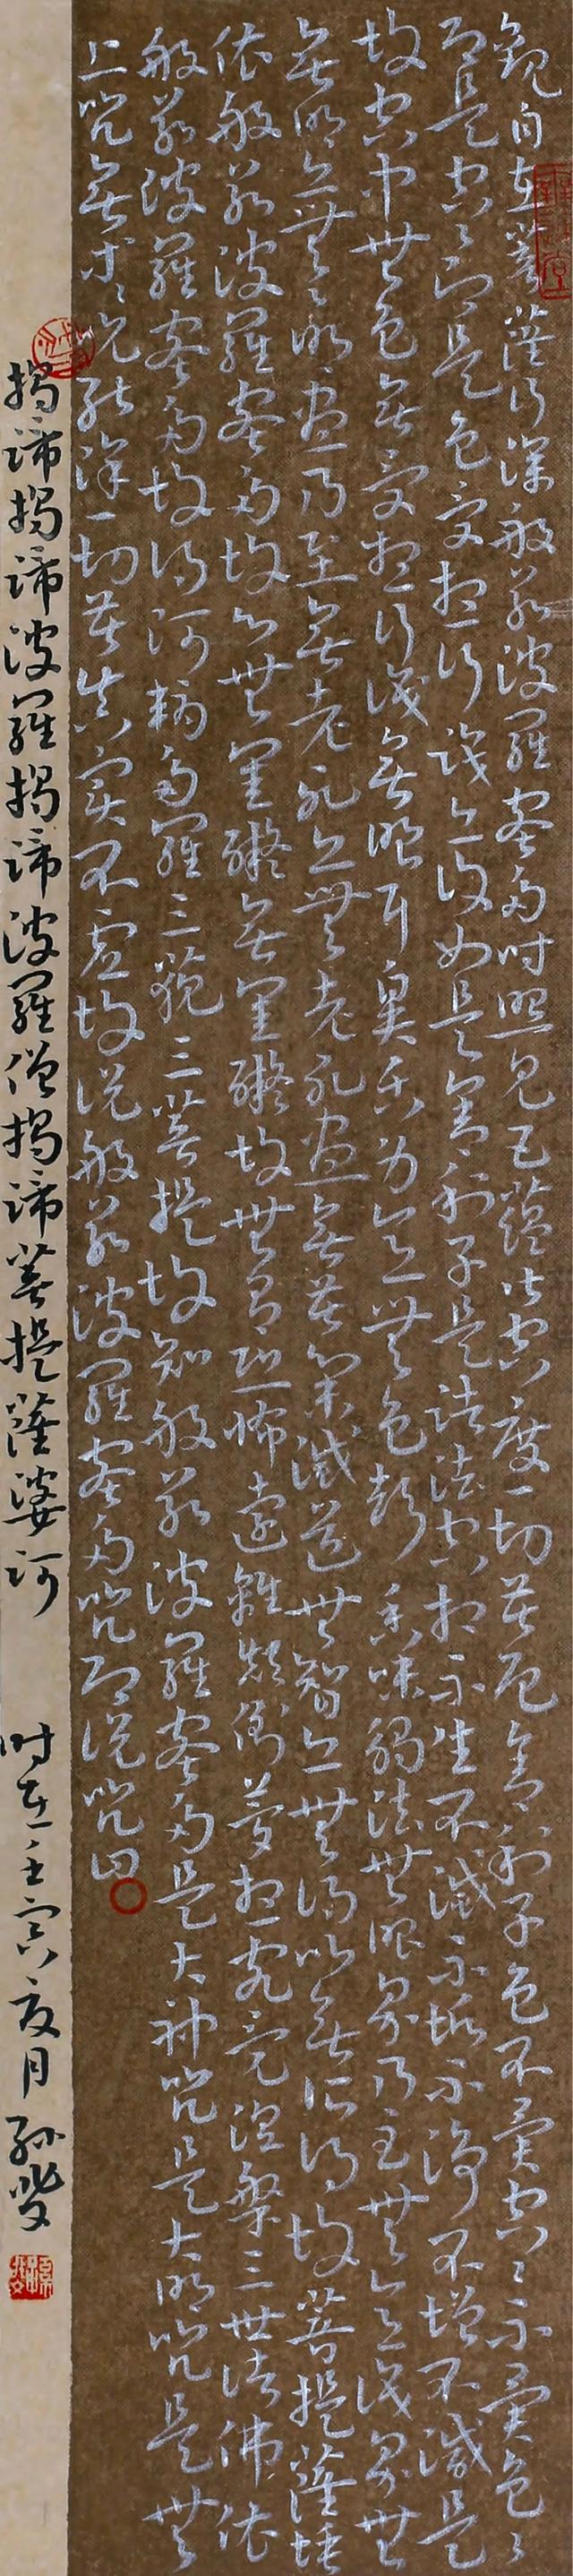 觀自在菩薩行深般若波羅蜜多時照見五蘊皆空度一切苦厄舍利子色不異空〻不異色〻
即是空〻即是色受想行識亦復如是舍利子是諸法空相不生不滅不垢不淨不增不減是
故空中無色無受想行識無眼耳鼻舌身意無色聲香味觸法無眼界乃至無意識界無
無明亦無〻明盡乃至無老死亦無老死盡無苦集滅道無智亦無得以無所得故菩提薩埵
依般若波羅蜜多故心無罣礙無罣礙故無有恐怖遠離顛倒夢想究竟涅槃三世諸佛依
般若波羅蜜多故得阿耨多羅三藐三菩提故知般若波羅蜜多是大神咒是大明咒是無
上咒無等〻咒能除一切苦真實不虛故說般若波羅蜜多咒即說咒曰
揭諦揭諦波羅揭諦波羅僧揭諦菩提薩婆訶 時在壬寅夏月 孫